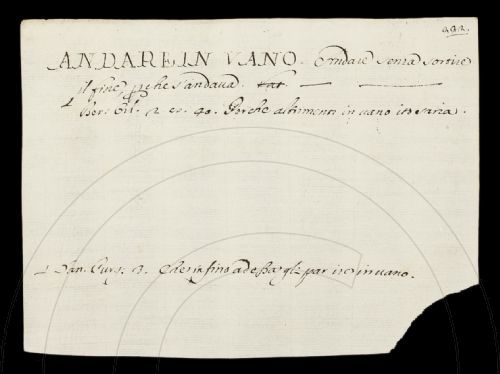 992.
ANDARE IN VANO. Andare senza sortire
il fine, p che s'andava. Lat. — —
Ber: Orl. 2. co. 40. Perche altrimenti in vano ito saria.
Dan. Purg. 2. Che infino ad essa gli par ire in vano.